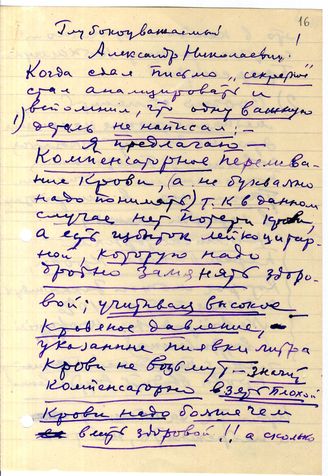 16
Глубокоуважаемый
Александр Николаевич!
Когда сдал письмо "секретно"
стал анализировать и
вспомнил, что одну важную
1) деталь не написал: –
Я предлагаю –
Компенсаторное перелива-
ние Крови, (а не буквально
надо понимать) т.к в данном
случае нет потери крови,
а есть избыток лейкоцитар-
ной, которую надо
дробно заменять здоро-
вой; учитывая высокое
кровяное давление, –
указанные пиявки литра
крови не возьмут – значит
компенсаторно взять плохой
крови надо больше чем
влить здоровой!! а сколько